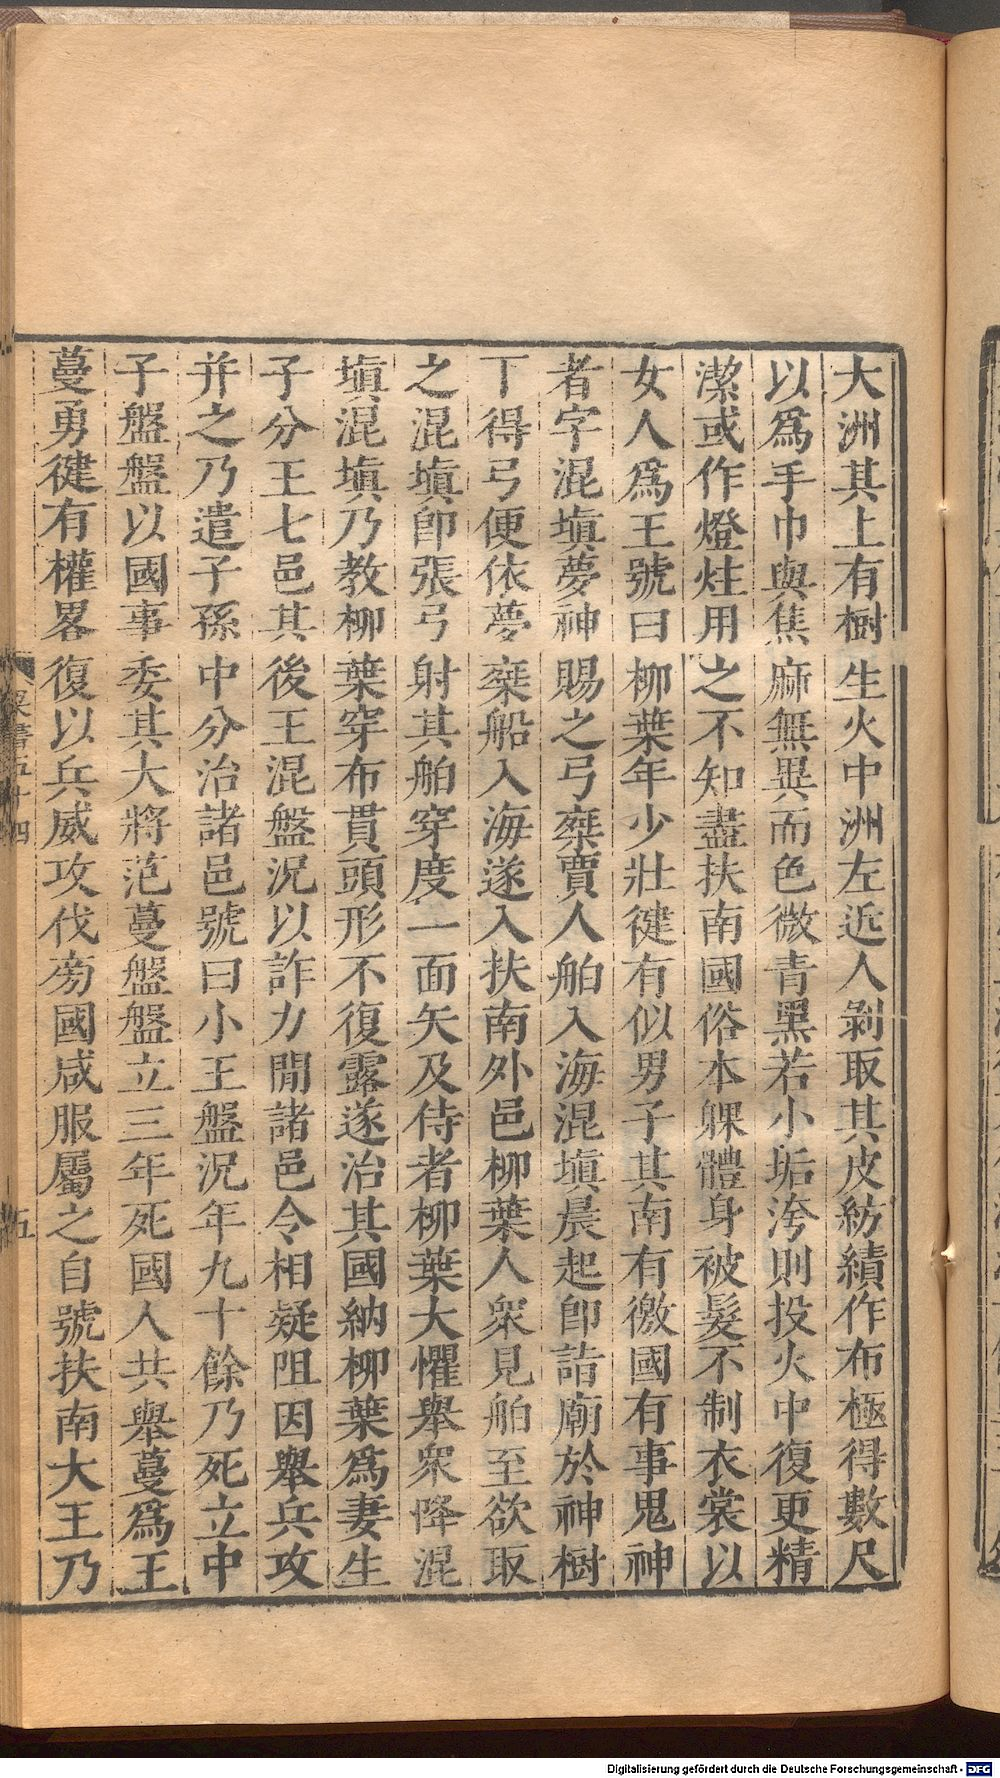 大洲其上有樹生火中洲左近人剝取其皮紡績作布極得數尺
以爲手巾與焦麻無異而色微青黑若小垢洿則投火中復更精
潔或作燈炷用之不知盡扶南國俗本躶體身被髮不制衣裳以
女人爲王號曰柳葉年少壯健有似男子其南有徼國有事鬼神
者字混塡夢神賜之弓乘賈人舶入海混塡晨起卽詣廟於神樹
下得弓便依夢乘船入海遂入扶南外邑柳葉人衆見舶至欲取
之混塡卽張弓射其舶穿度一面矢及侍者柳葉大懼舉衆降混
塡混塡乃教柳葉穿布貫頭形不復露遂治其國納柳葉爲妻生
子分王七邑其後王混盤況以詐力閒諸邑令相疑阻因舉兵攻
并之乃遣子孫中分治諸邑號曰小王盤況年九十餘乃死立中
子盤盤以國事委其大將范蔓盤盤立三年死國人共舉蔓爲王
蔓勇健有權畧復以兵威攻伐旁國咸服屬之自號扶南大王乃
梁書五十四
五
Digitalisierung gefördert durch die Deutsche Forschungsgemeinschaft - DFG